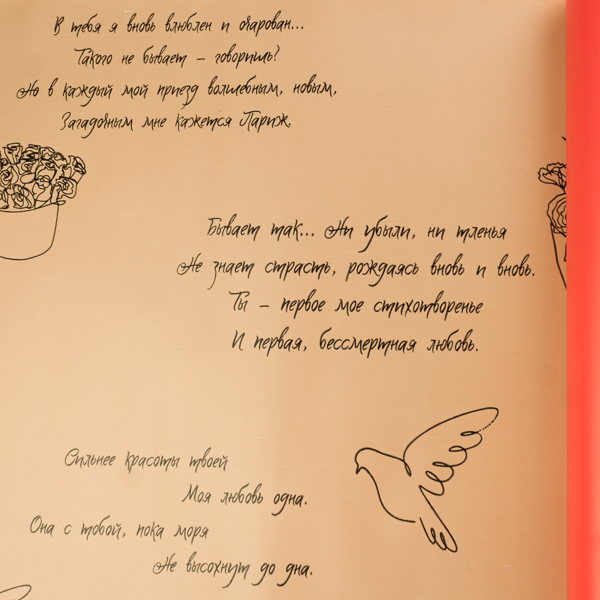 В тебя я вновь влюблен и очарован...
Такого не бывает – говоришь?
Но в каждый мой приезд волшебным, новым,
Загадочным мне кажется Париж.
Бывает так... Ни убыли, ни тленья
Не знает страсть, рождаясь вновь и вновь.
Ты – первое мое стихотворенье
И первая, бессмертная любовь.
Сильнее красоты твоей
Моя любовь одна.
Она с тобой, пока моря
Не высохнут до дна.